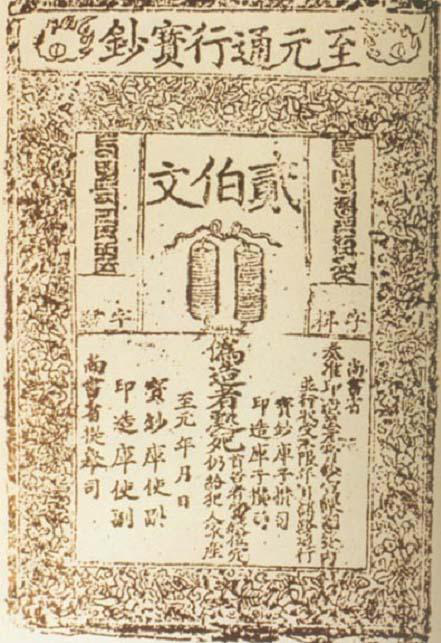 至元通行寶鈔
貳伯文
字
字
尚書省
奏准印造至元寶鈔宣課差役內
並行收受不限年月諸路通行
寶鈔庫子攢司
印造庫子攢司
偽造者處死
首告者賞銀伍定
仍給犯人家產
至元年月日
寶鈔庫使副
印造庫使副
尚書省提舉司